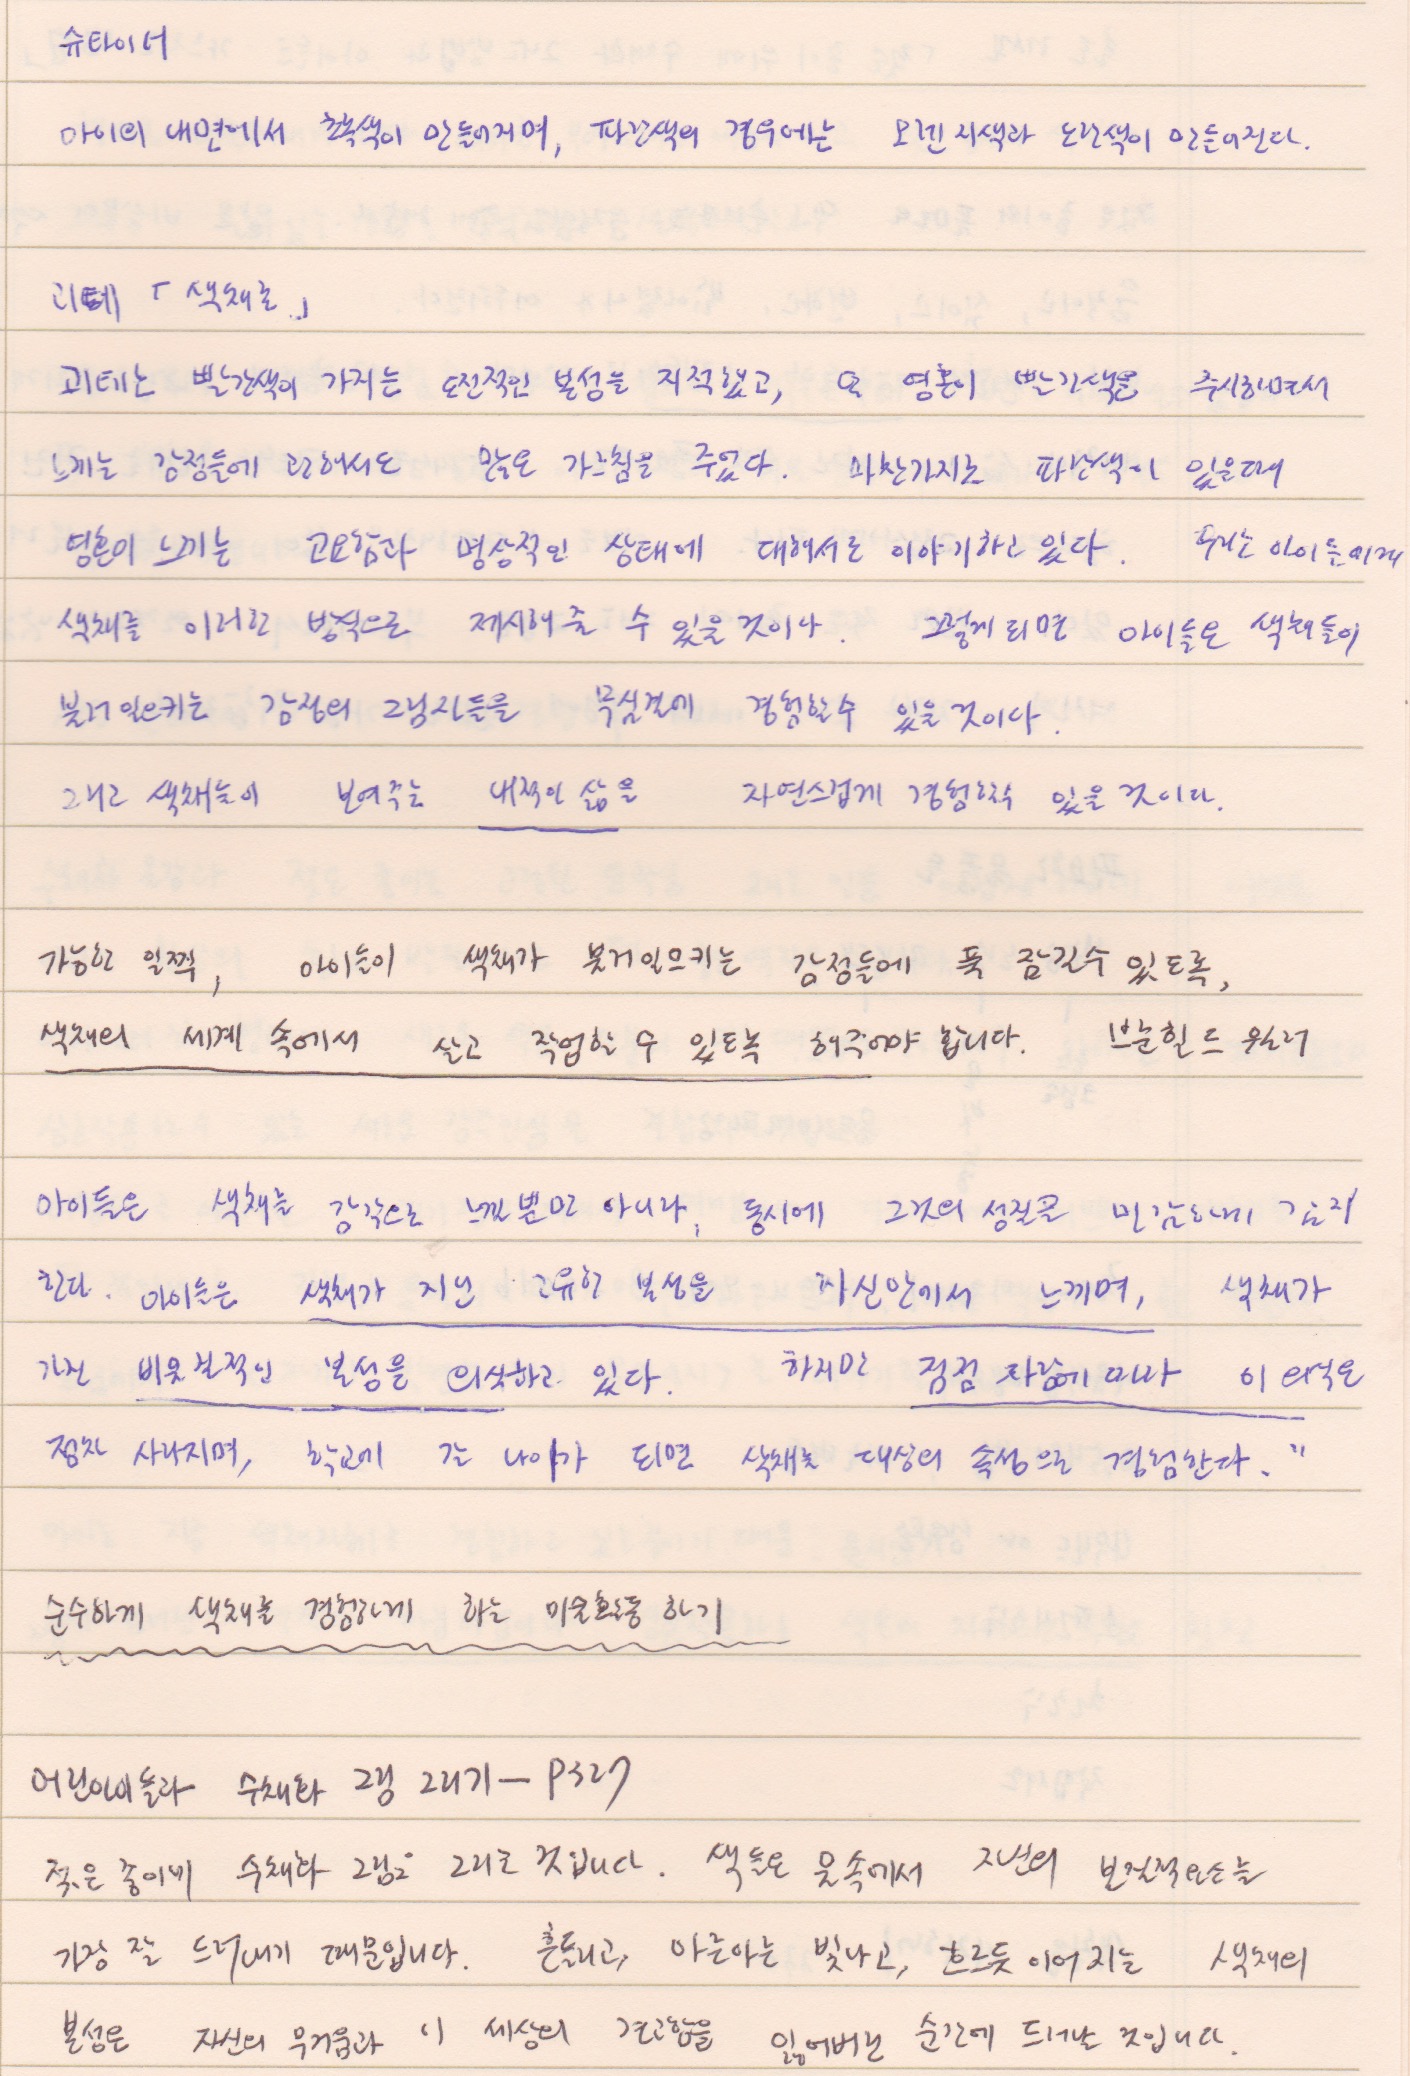 슈타이너
아이의 내면에서 초록색이 만들어지며, 파란색의 경우에는 오렌지색과 노란색이 만들어진다.
괴테 「색채론」
괴테는 빨간색이 가지는 도전적인 본성을 지적했고, 또 영혼이 빨간색을 주시하면서
느끼는 감정들에 관해서도 많은 가르침을 주었다. 마찬가지로 파란색이 있을때
영혼이 느끼는 고요함과 명상적인 상태에 대해서도 이야기하고 있다. 우리는 아이들에게
색채를 이러한 방식으로 제시해줄 수 있을것이다. 그렇게 되면 아이들은 색채들이
불러일으키는 감정의 그림자들을 무심결에 경험할수 있을것이다.
그리고 색채들이 보여주는 내적인 삶을 자연스럽게 경험할수 있을 것이다.
가능한 일찍, 아이들이 색채가 불러일으키는 감정들에 푹 잠길수 있도록,
색채의 세계 속에서 살고 작업할 수 있도록 해주어야 합니다. 브룬힐드 뮐러
아이들은 색채를 감각으로 느낄뿐만 아니라, 동시에 그것의 성질을 민감하게 감지
한다. 아이들은 색채가 지닌 고유한 본성을 자신안에서 느끼며, 색채가
가진 비물질적인 본성을 의식하고 있다. 하지만 점점 자람에 따라 이 의식은
점차 사라지며, 학교에 갈 나이가 되면 색채를 대상의 속성으로 경험한다."
순수하게 색채를 경험하게 하는 미술활동 하기
어린아이들과 수채화 그림 그리기 — P327
젖은 종이에 수채화 그림을 그리는 것입니다. 색들은 물속에서 자신의 본질적요소를
가장 잘 드러내기 때문입니다. 흔들리고, 아른아른 빛나고, 흐르듯 이어지는 색채의
본성은 자신의 무거움과 이 세상의 견고함을 잃어버린 순간에 드러날 것입니다.